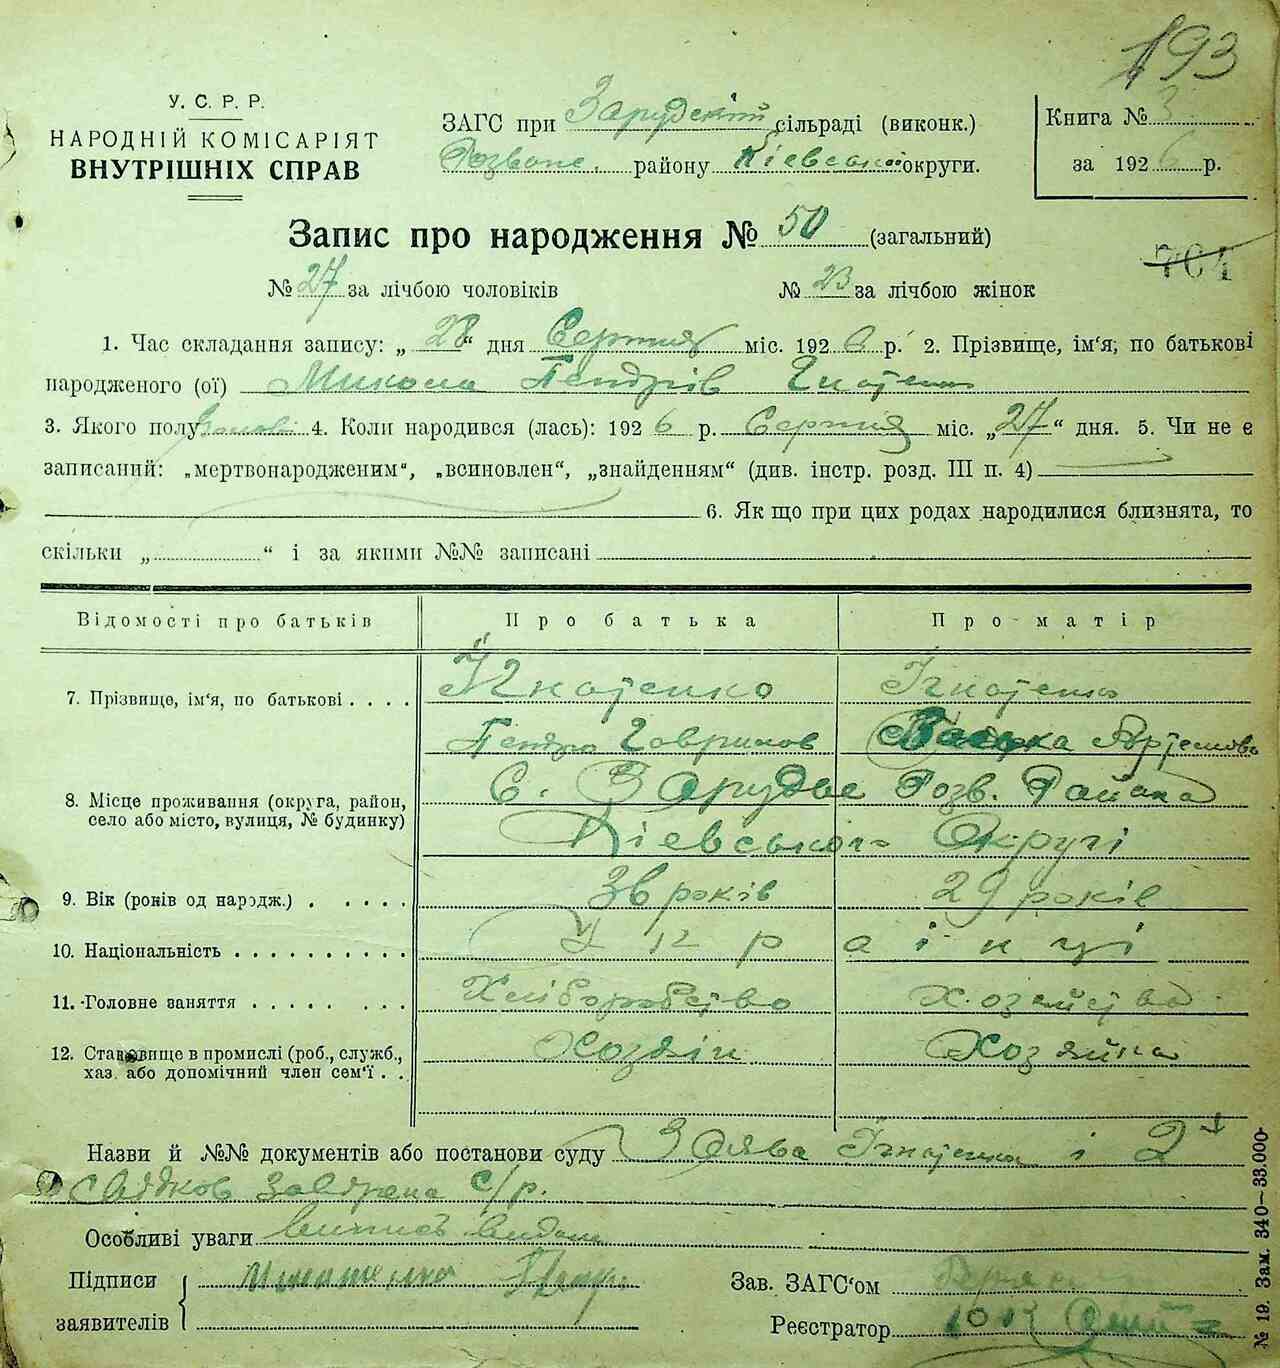 193
У. С. Р. Р.
НАРОДНІЙ КОМІСАРІЯТ
ВНУТРІШНІХ СПРАВ
ЗАГС при Зарудській сільраді (виконк.)
Розваж. району Київської округи.
Книга № 3
за 1926 р.
Запис про народження № 50 (загальний)
704
№ 27 за лічбою чоловіків № 23 за лічбою жінок
1. Час складання запису: „ 28 “ дня Серпня міс. 1926 р. 2. Прізвище, ім'я, по батькові
народженого (ої) Микола Петрів Ігнатенко
3. Якого полу 4. Коли народився (лась): 1926 р. Серпня міс. „27“ дня. 5. Чи не є
записаний: „мертвонародженим“, „всиновлен“, „знайденням“ (див. інстр. розд. III п. 4)
6. Як що при цих родах народилися близнята, то
скільки „ “ і за якими №№ записані
Відомості про батьків Про батька Про матір
7. Прізвище, ім'я, по батькові . . . . Ігнатенко Ігнатенко
Петро Гаврилов Артемова
8. Місце проживання (округа, район,
село або місто, вулиця, № будинку)
С. Зарудье Розв. Района
Київського Округі
9. Вік (років од нарэдж.) . . . . . 36 років 29 років
10. Національність . . . . . . . . . . Українці
11. Головне заняття . . . . . . . Хліборобство Хозяйство
12. Становище в промислі (роб., служб.,
хаз. або допомічний член сем'ї . . Хозяін Хозяйка
Назви й №№ документів або постанови суду Заява Ігнатенка і 2х
свідков завірена с/р.
Особливі уваги
Підписи
заявителів
Зав. ЗАГС'ом
Реєстратор
№ 19. Зам. 340—33.000.